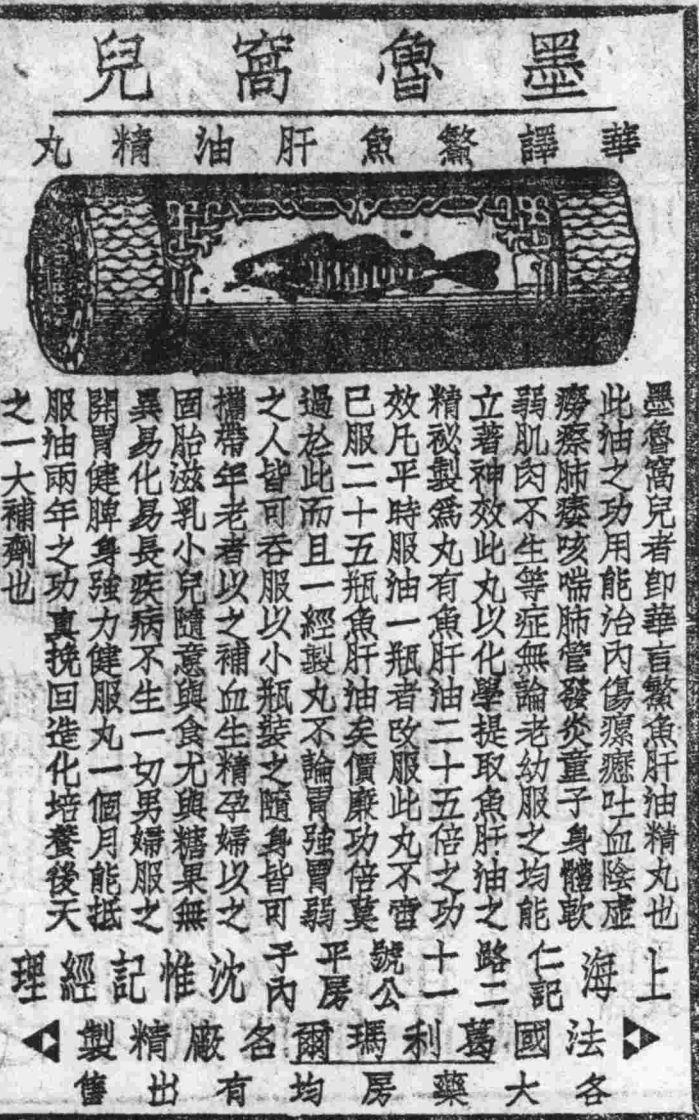 墨魯窩兒
華譯鰵魚肝油精丸
墨魯窩兒者卽華言鰵魚肝油精丸也
此油之功用能治內傷瘰癧吐血陰虛
癆瘵肺痿咳喘肺管發炎童子身體軟
弱肌肉不生等症無論老幼服之均能
立著神效此丸以化學提取魚肝油之
精祕製爲丸有魚肝油二十五倍之功
效凡平時服油一瓶者改服此丸不啻
已服二十五瓶魚肝油矣價廉功倍莫
過於此而且一經製丸不論胃強胃弱
之人皆可吞服以小瓶裝之隨身皆可
攜帶年老者以之補血生精孕婦以之
固胎滋乳小兒隨意與食尤與糖果無
異易化易長疾病不生一切男婦服之
開胃健脾身強力健服丸一個月能抵
服油兩年之功眞挽回造化培養後天
之一大補劑也
上海仁記路二十一號公平房子內沈惟記經理
法國葛利瑪爾名廠精製
各大藥房均有出售